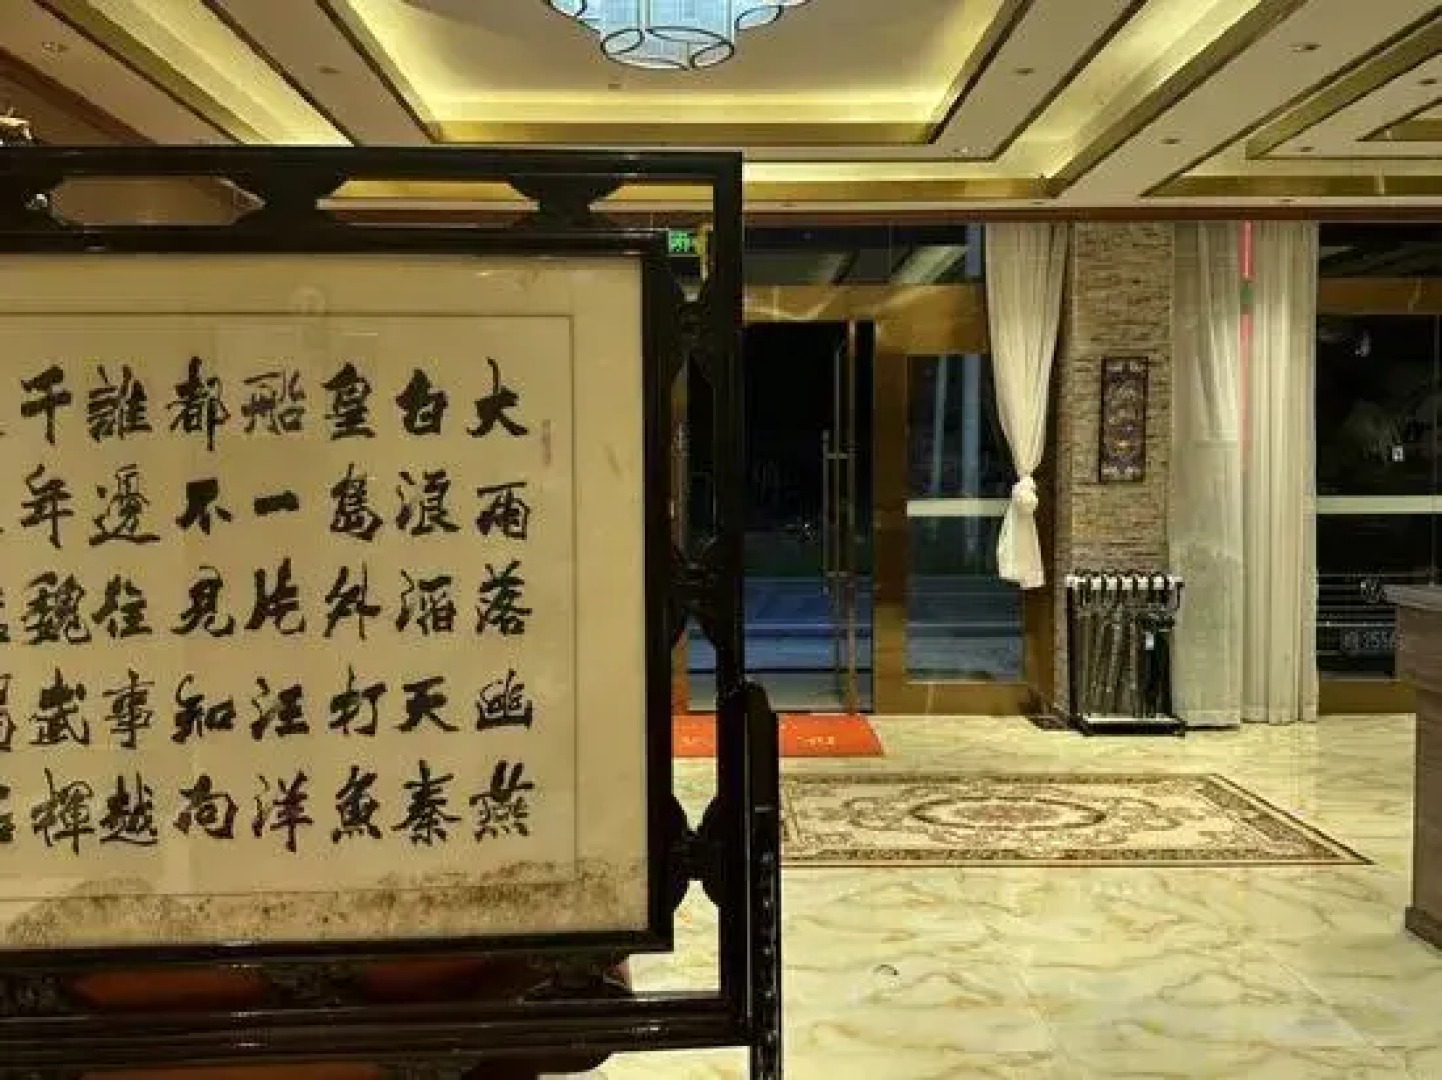 大雨落幽燕
白浪滔天秦
皇島外打魚
船一片汪洋
都不見知向
誰邊往事越
千年魏武揮